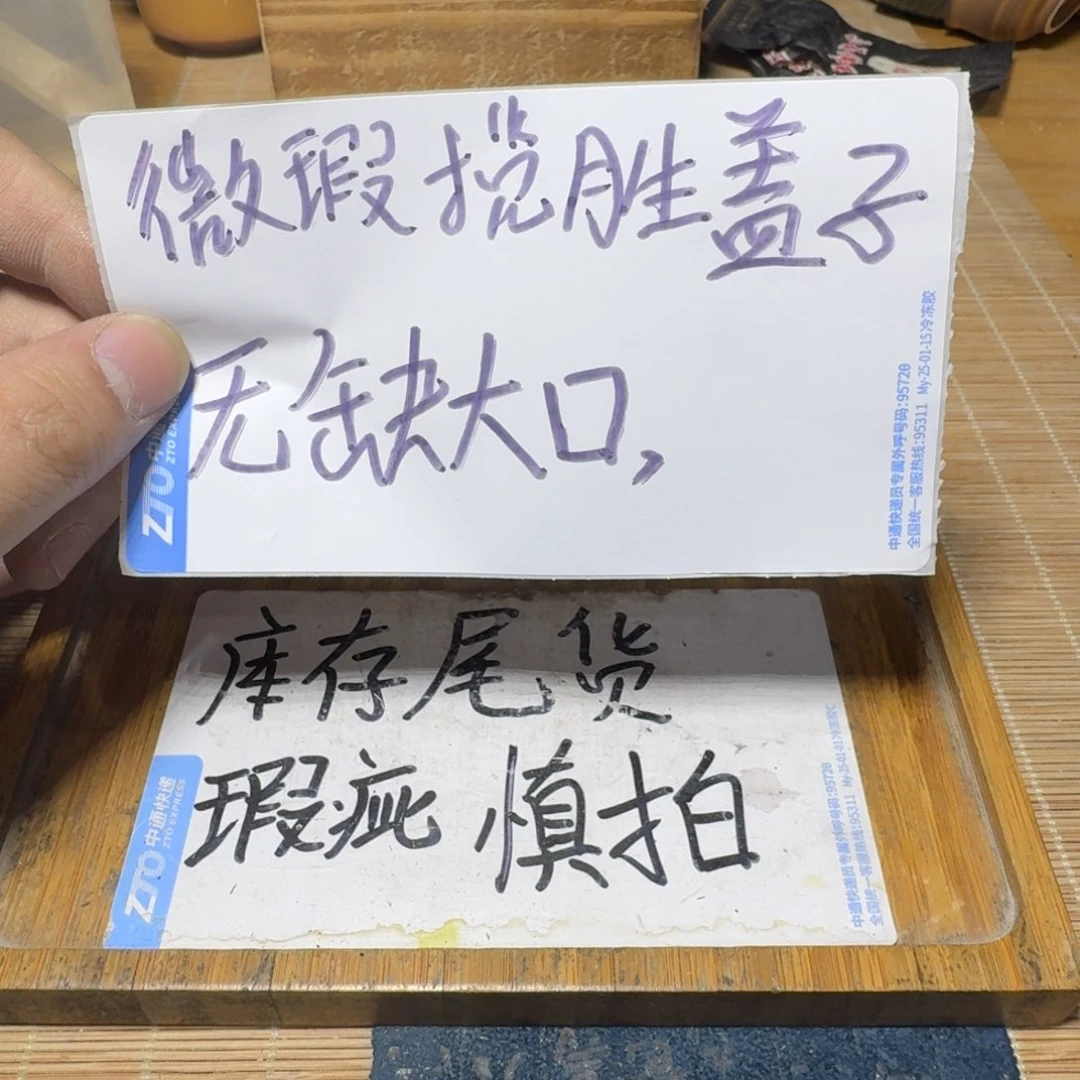 微瑕揽胜盖子
无缺大口,
ZTO 中通
ZTO EXPRESS
中通快递员专属外呼号码:95720
全国统一客服热线:95311 My-25-01-15冷冻胶
库存尾货
瑕疵 慎拍
ZTO 中通快递
ZTO EXPRESS
中通快递员专属外呼号码:95720
全国统一客服热线:95311 My-25-01-01冷冻胶C